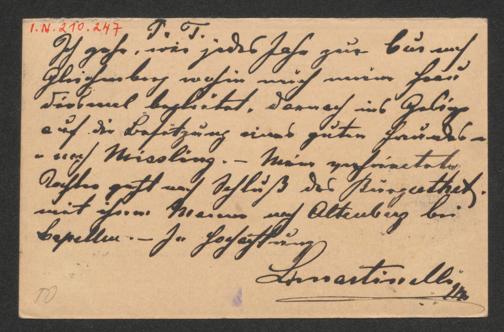 I.N. 210.247
P. T.
Ich gehe, wie jedes Jahr zur Cur nach
Gleichenberg wohin mich meine Frau
diesmal begleitet, darnach ins Gebirge
auf die Besitzung eines guten Freundes -
- nach Missling. - Meine verheiratete
Tochter geht nach Schluß des Burgtheat.
mit ihrem Manne nach Altenberg bei
Capellen. - In Hochachtung
L. Martinelli